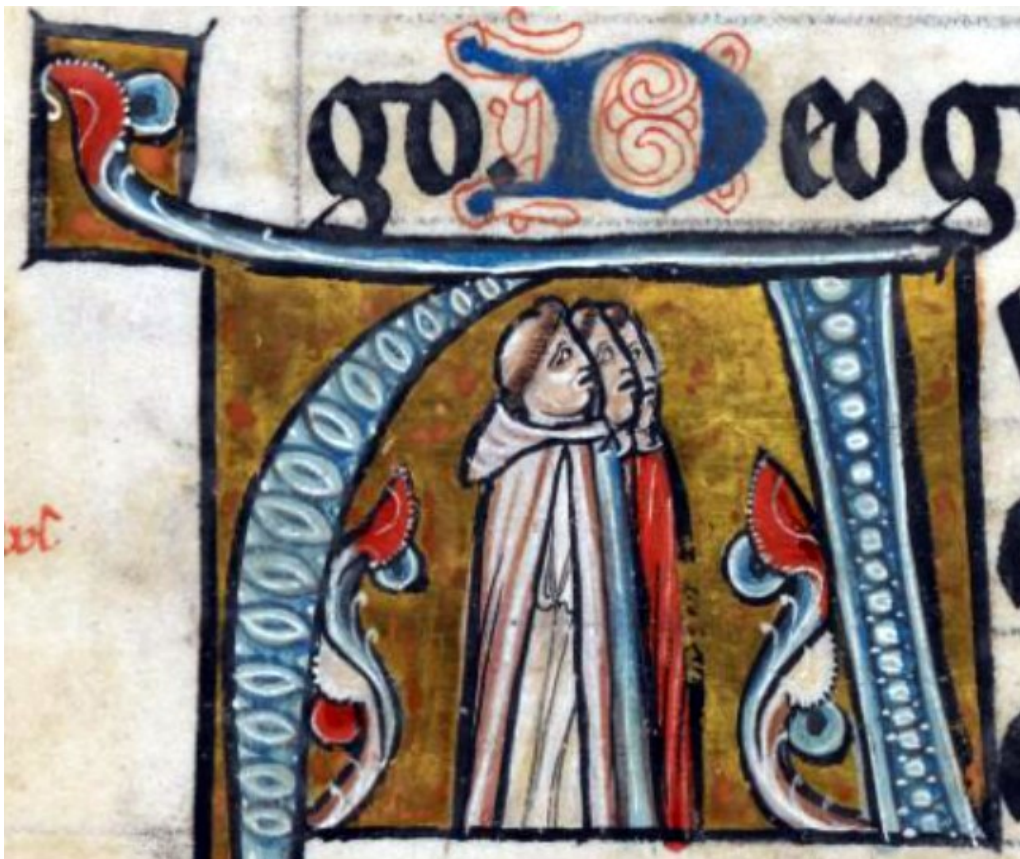 go. Deo g
A